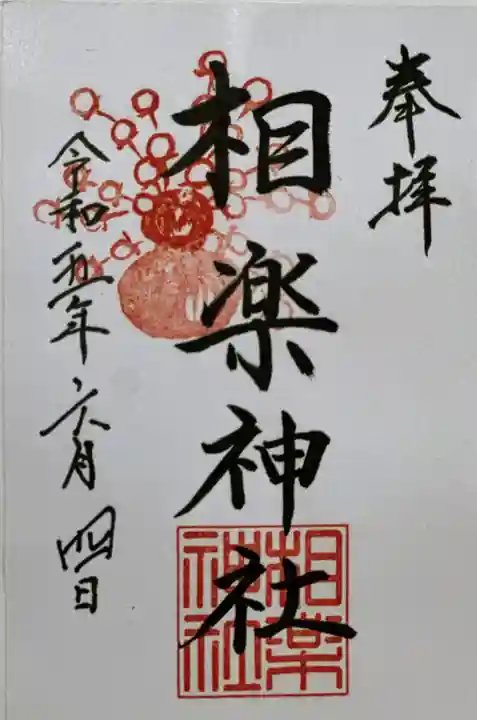 奉拝
相楽神社
令和五年六月四日
相楽
神社